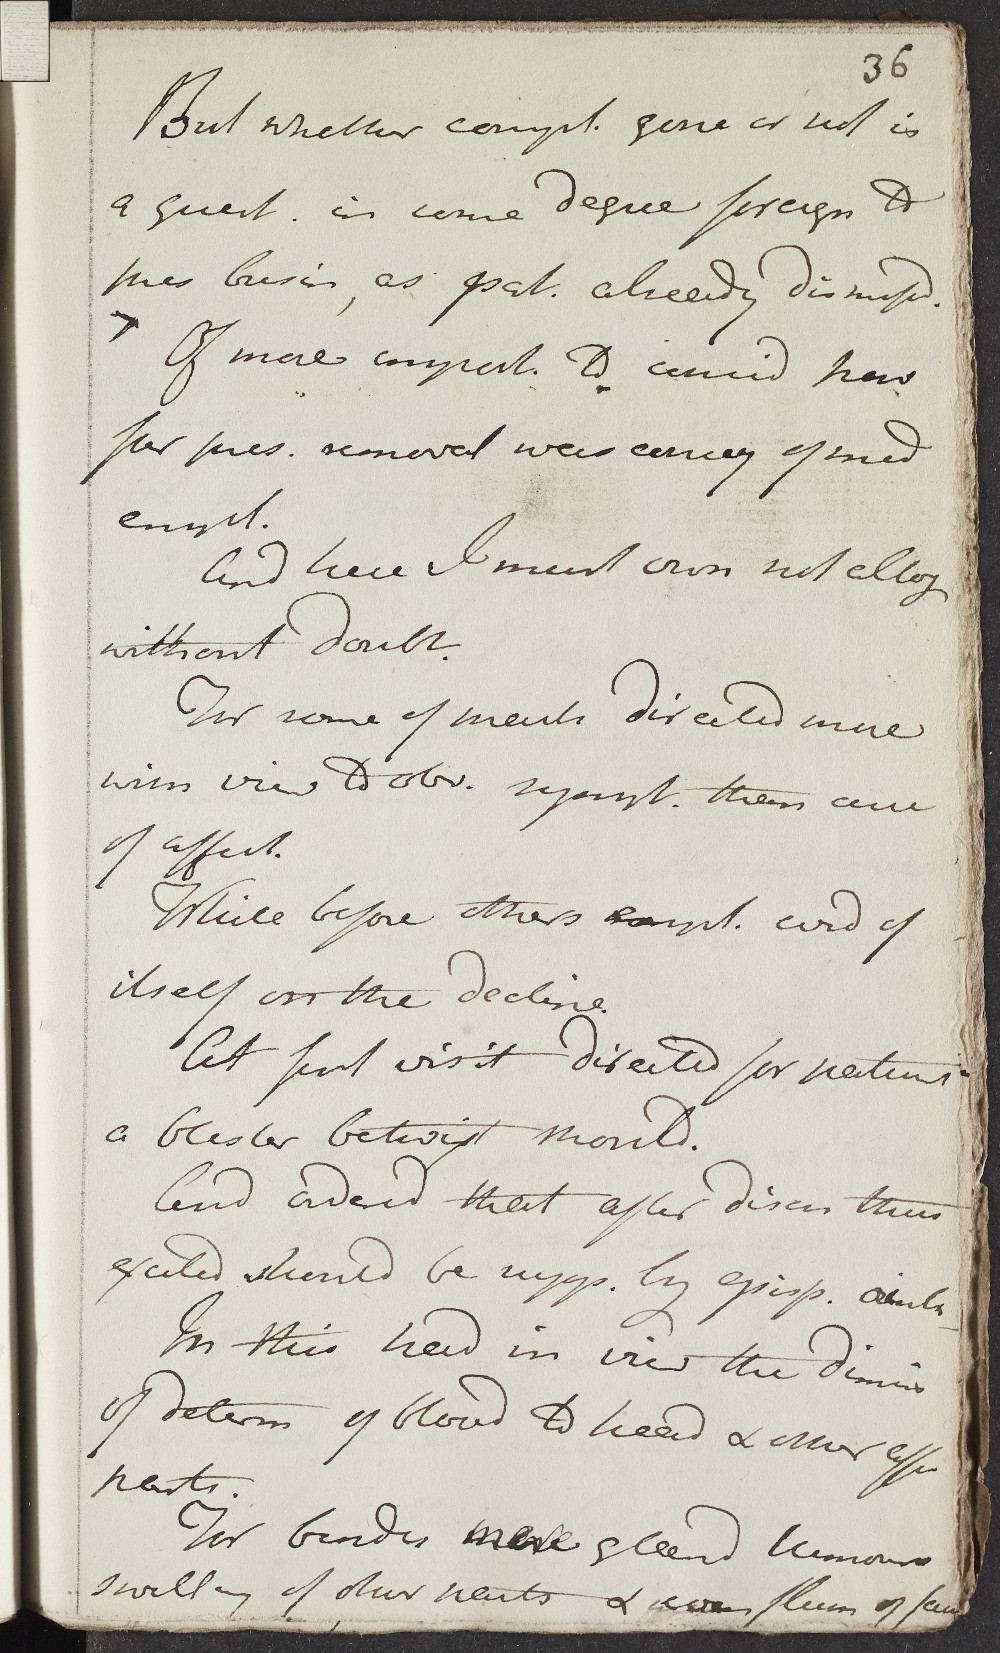 36
But whether compl. gone or not is
a quest. in some degree foreign to
pres busin, as pat. already dismissd.
Of more import. to consid how
far pres. removal was conseq of med
empl.
And here I must own not altog
without doubt.
For some of meds directed more
with view to obv. sympt. then cure
of affect.
While before others empl. coud of
itself on the decline.
At first visit directed for patient
a blister betwixt should.
And ordered that after discn thus
excited should be supp. by episp. ointm
In this had in view the dimin
of determ of blood to head & other affec
parts.
For besides more gland tumours
swelling of other parts & even flum of fau